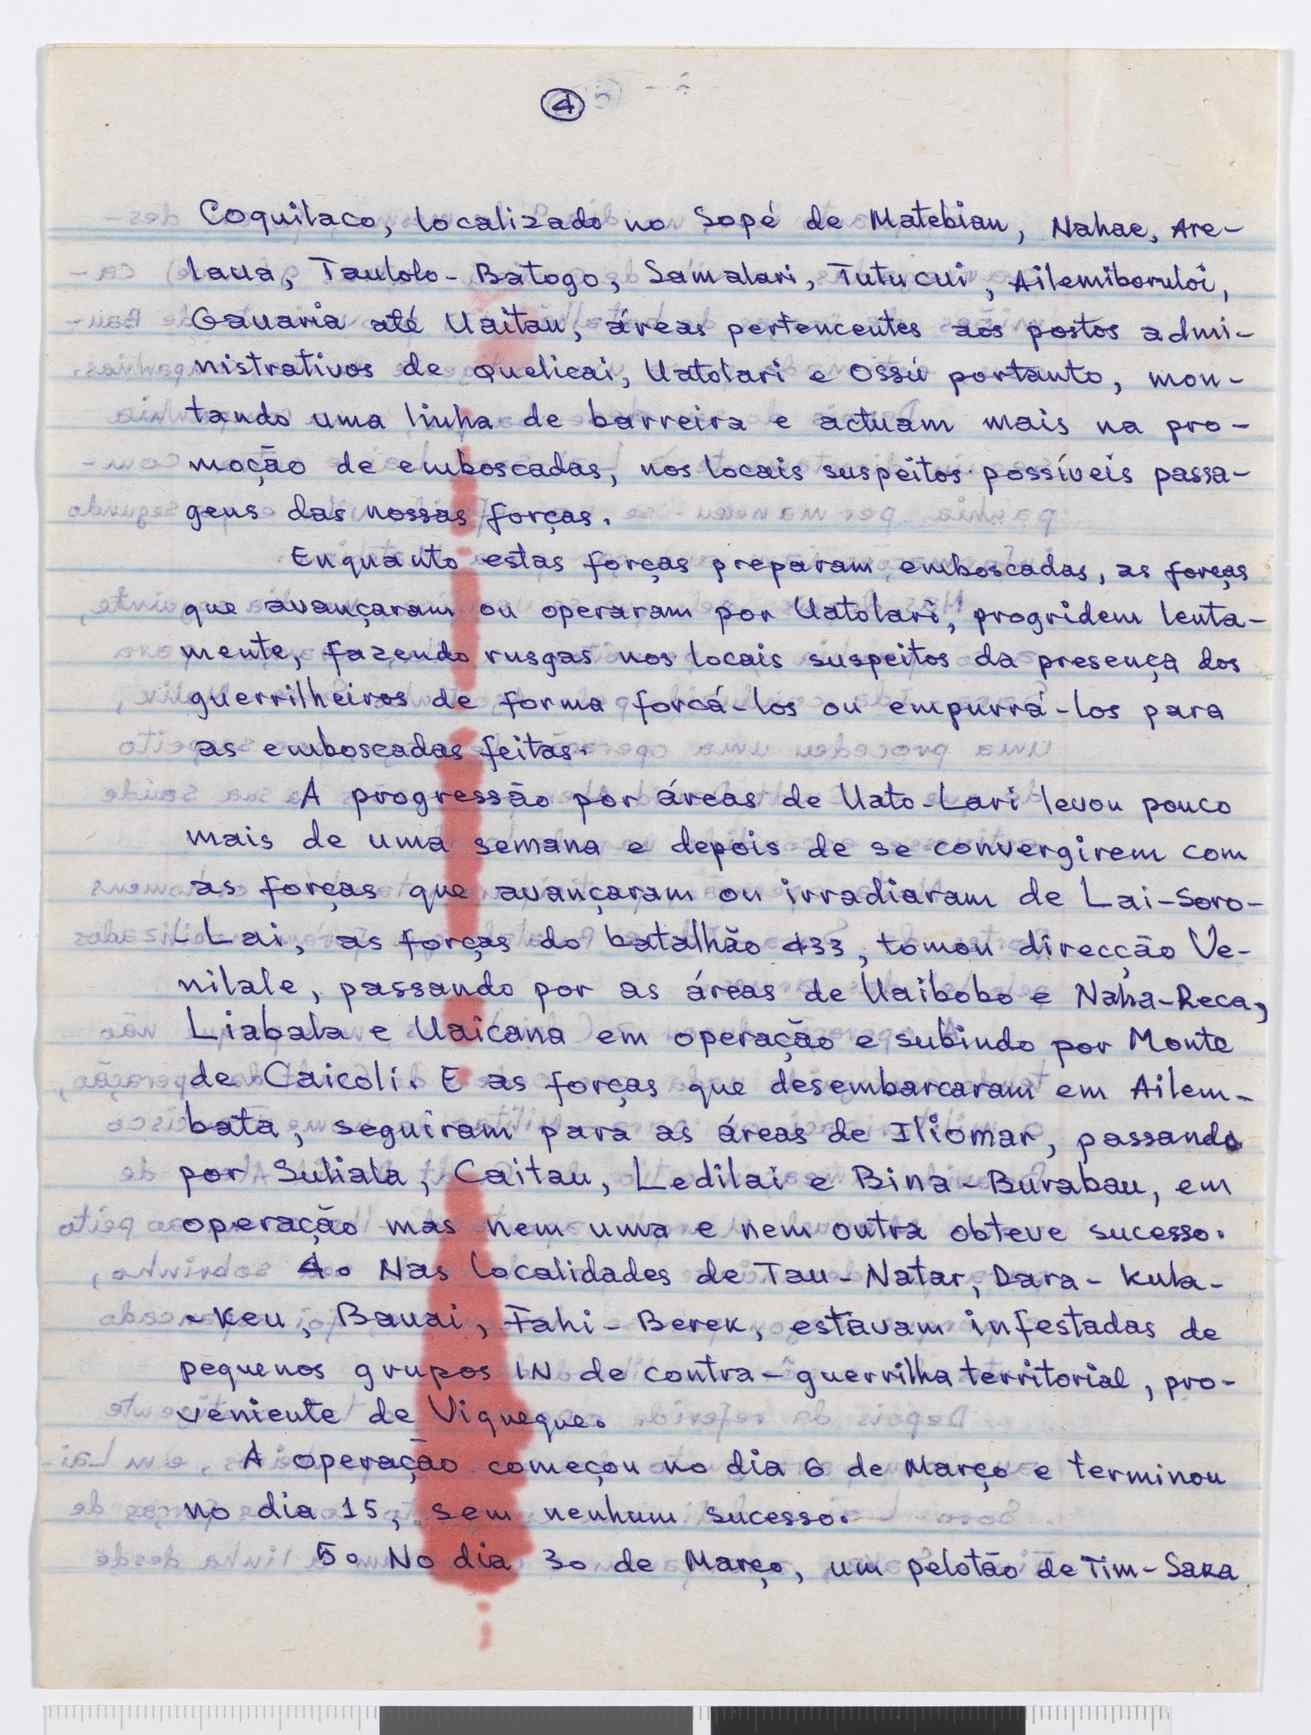 4
Coquilaco, localizado no Sopé de Matebian, Nahae, Are-
laua, Taulolo-Batogo, Samalari, Tutucui, Ailemiboruloi,
Gauaria até Uaitau, áreas pertencentes aos postos admi-
nistrativos de Quelicai, Uatolari e Ossú portanto, mon-
tando uma linha de barreira e actuam mais na pro-
moção de emboscadas, nos locais suspeitos possíveis passa-
gens das nossas forças.
Enquanto estas forças preparam emboscadas, as forças
que avançaram ou operaram por Uatolari, progridem lenta-
mente, fazendo rusgas nos locais suspeitos da presença dos
guerrilheiros de forma forcá-los ou empurrá-los para
as emboscadas feitas.
A progressão por áreas de Uato-Lari levou pouco
mais de uma semana e depois de se convergirem com
as forças que avançaram ou irradiaram de Lai-Soro-
-Lai, as forças do batalhão 433, tomou direcção Ve-
nilale, passando por as áreas de Uaibobo e Naha-Reca,
Liabala e Uaicana em operação e subindo por Monte
de Caicoli. E as forças que desembarcaram em Ailem-
bata, seguiram para as áreas de Iliomar, passando
por Suliala, Caitau, Ledilai e Bina-Burabau, em
operação mas nem uma e nem outra obteve sucesso.
4. Nas localidades de Tau-Natar, Dara-Kula-
-Keu, Bauai, Fahi-Berek, estavam infestadas de
pequenos grupos IN de contra-guerrilha territorial, pro-
veniente de Viqueque.
A operação começou no dia 6 de Março e terminou
no dia 15, sem nenhum sucesso.
5. No dia 30 de Março, um pelotão de Tim-Sara